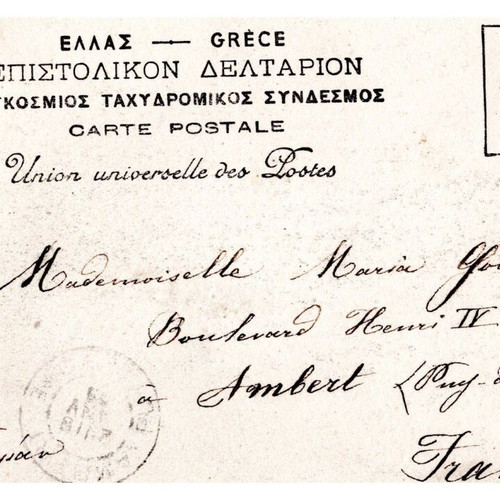 ΕΛΛΑΣ — GRÈCE
ΕΠΙΣΤΟΛΙΚΟΝ ΔΕΛΤΑΡΙΟΝ
ΓΚΟΣΜΙΟΣ ΤΑΧΥΔΡΟΜΙΚΟΣ ΣΥΝΔΕΣΜΟΣ
CARTE POSTALE
Union universelle des Postes
Mademoiselle Maria
Boulevard Henri IV
à Ambert (Puy-
Fra